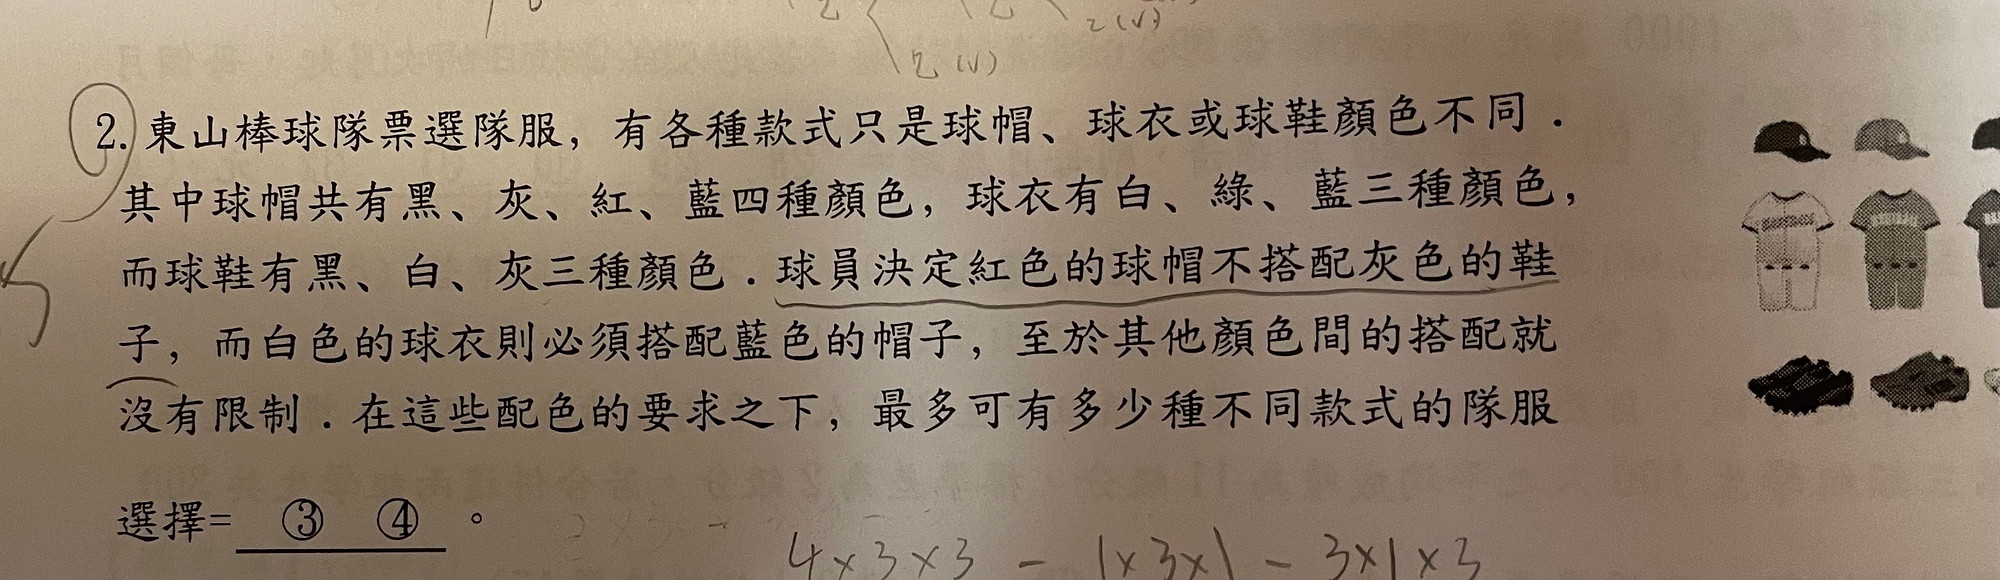 2(V)
2(V)
2. 東山棒球隊票選隊服，有各種款式只是球帽、球衣或球鞋顏色不同．
其中球帽共有黑、灰、紅、藍四種顏色，球衣有白、綠、藍三種顏色，
而球鞋有黑、白、灰三種顏色．球員決定紅色的球帽不搭配灰色的鞋
子，而白色的球衣則必須搭配藍色的帽子，至於其他顏色間的搭配就
沒有限制．在這些配色的要求之下，最多可有多少種不同款式的隊服
選擇= ③ ④ 。
4×3×3 - 1×3×1 - 3×1×3